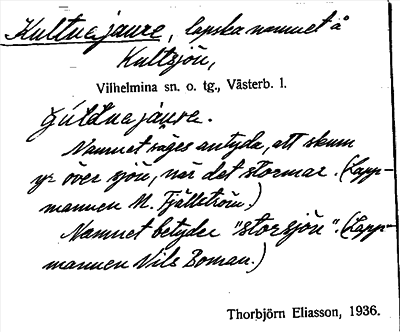 Kultuajaure, lapska namnet å
Kultsjön,
Vilhelmina sn. o. tg., Västerb. l.
Gúlduajáure.
Namnet säges antyda, att skum
yr över sjön, när det stormar. (Lapp-
mannen M. Fjällström.)
Namnet betyder "storsjön". (Lapp-
mannen Nils Boman.)
Thorbjörn Eliasson, 1936.